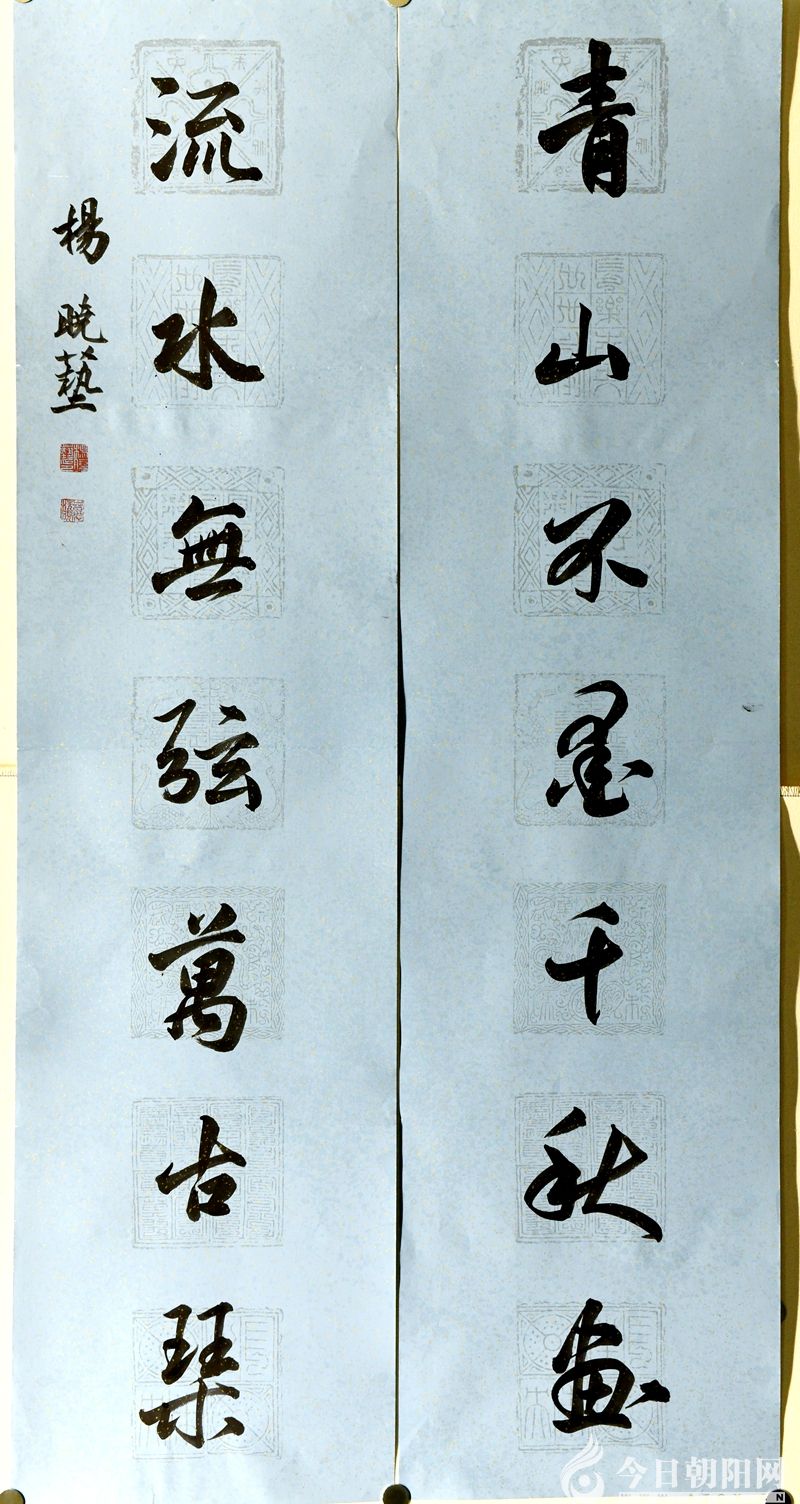 青山不墨千秋画
流水無弦萬古琹
楊曉藝
今日朝阳网